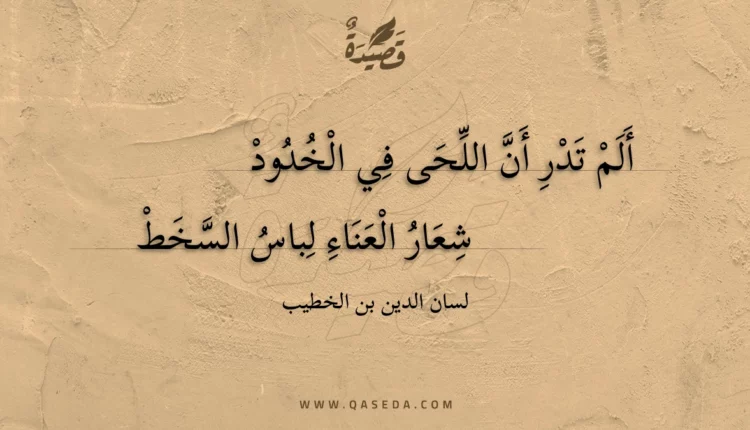 قَصِيْدَةٌ
أَلَمْ تَدْرِ أَنَّ اللِّحَى فِي الْخُدُودْ
شِعَارُ الْعَنَاءِ لِباسُ السَّخَطْ
لسان الدين بن الخطيب
WWW.QASEDA.COM